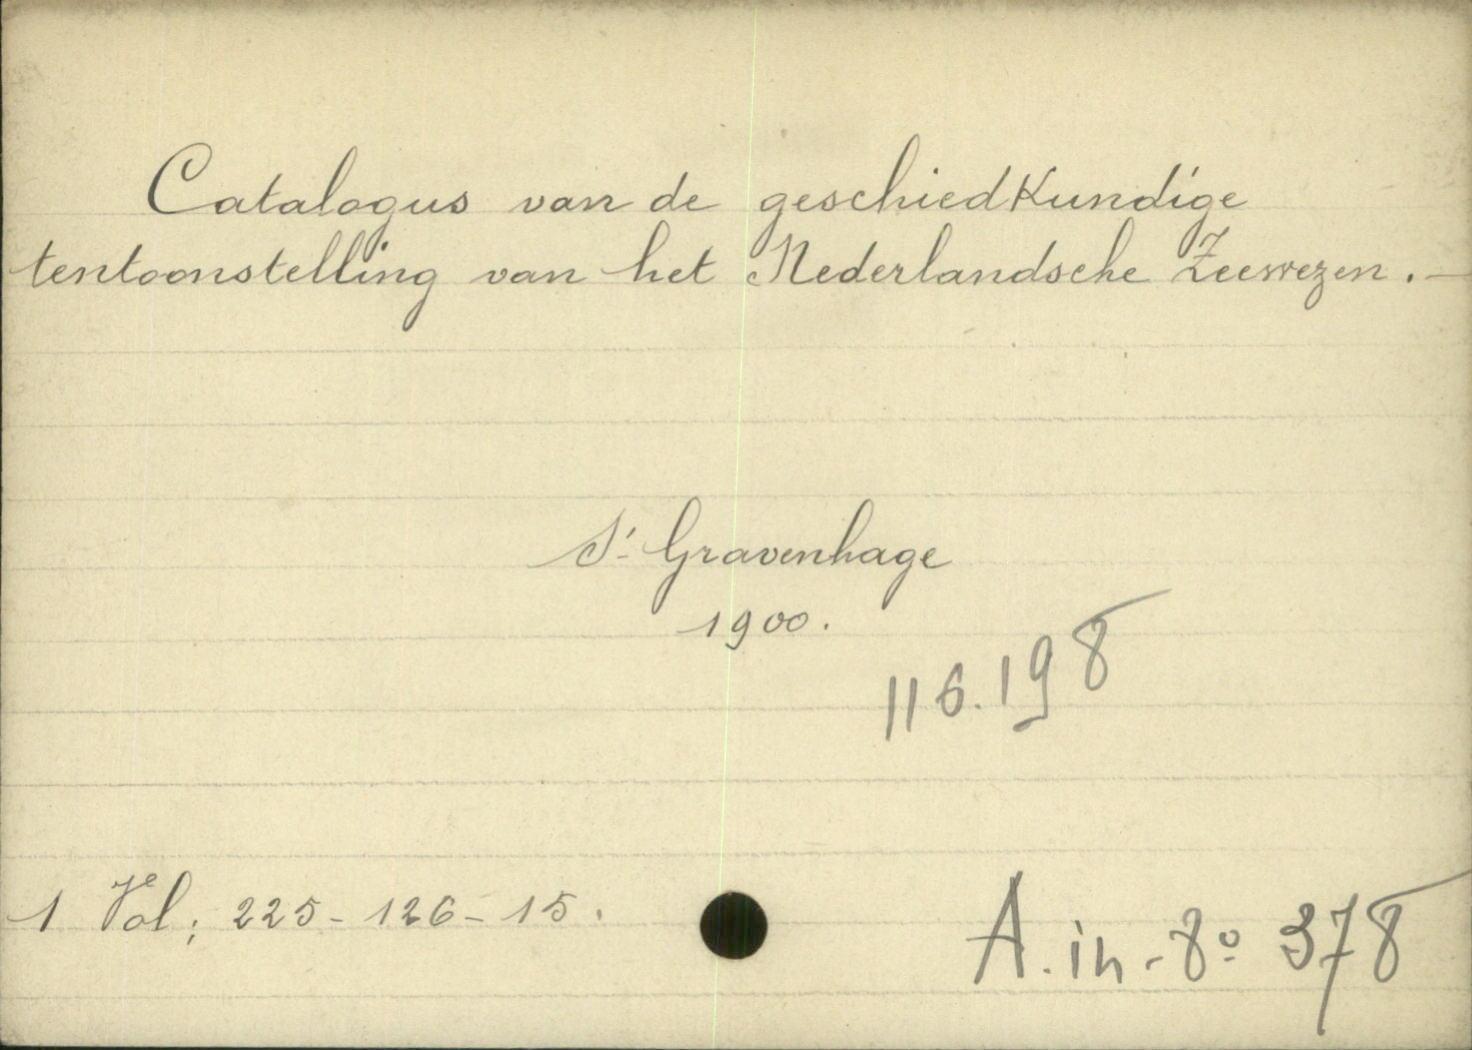 Catalogus van de geschiedkundige
tentoonstelling van het Nederlandsche Zeewezen. —
S'- Gravenhage
1900.
116.198
1 Vol; 225 - 126 - 15.
A. in - 8º 378